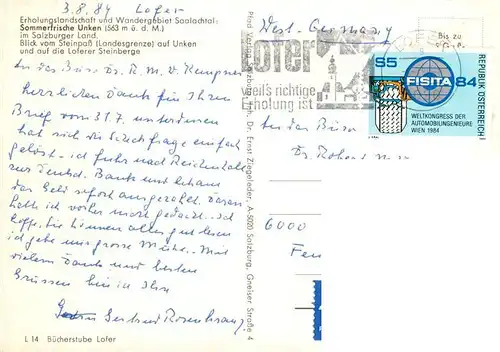 3.8.84 Lofer
Erholungslandschaft und Wandergebiet Saalachtal:
Sommerfrische Unken (563 m ü. d. M.)
im Salzburger Land.
Blick vom Steinpaß (Landesgrenze) auf Unken
und auf die Loferer Steinberge
An das Büro Dr. R. M. W. Kempner
herzlichen Dank für Ihren
Brief vom 31.7. unterdessen
hat sich die Sachfrage einfach
gelöst. ich fuhr nach Reichenhall
zur Deutsch. Bank und bekam
das Geld sofort ausgezahlt. Daran
hatte ich vorher nicht gedacht. ich
hoffe, Sie können alles gut lesen
ich gebe mir grosse Mühe. Mit
vielem Dank und besten
Grüssen bin ich Ihre
Gertrud Rosenkranz
L 14 Bücherstube Lofer
Pfad Verlag Salzburg, Inh. Dr. Ernst Ziegeleder, A-5020 Salzburg, Gneiser Straße 4
West-Germany
Lofer
weils richtige
erholung ist
Bis zu
S5
FISITA 84
WELTKONGRESS DER
AUTOMOBILINGENIEURE
WIEN 1984
REPUBLIK ÖSTERREICH
An das Büro
Dr. Robert
6000